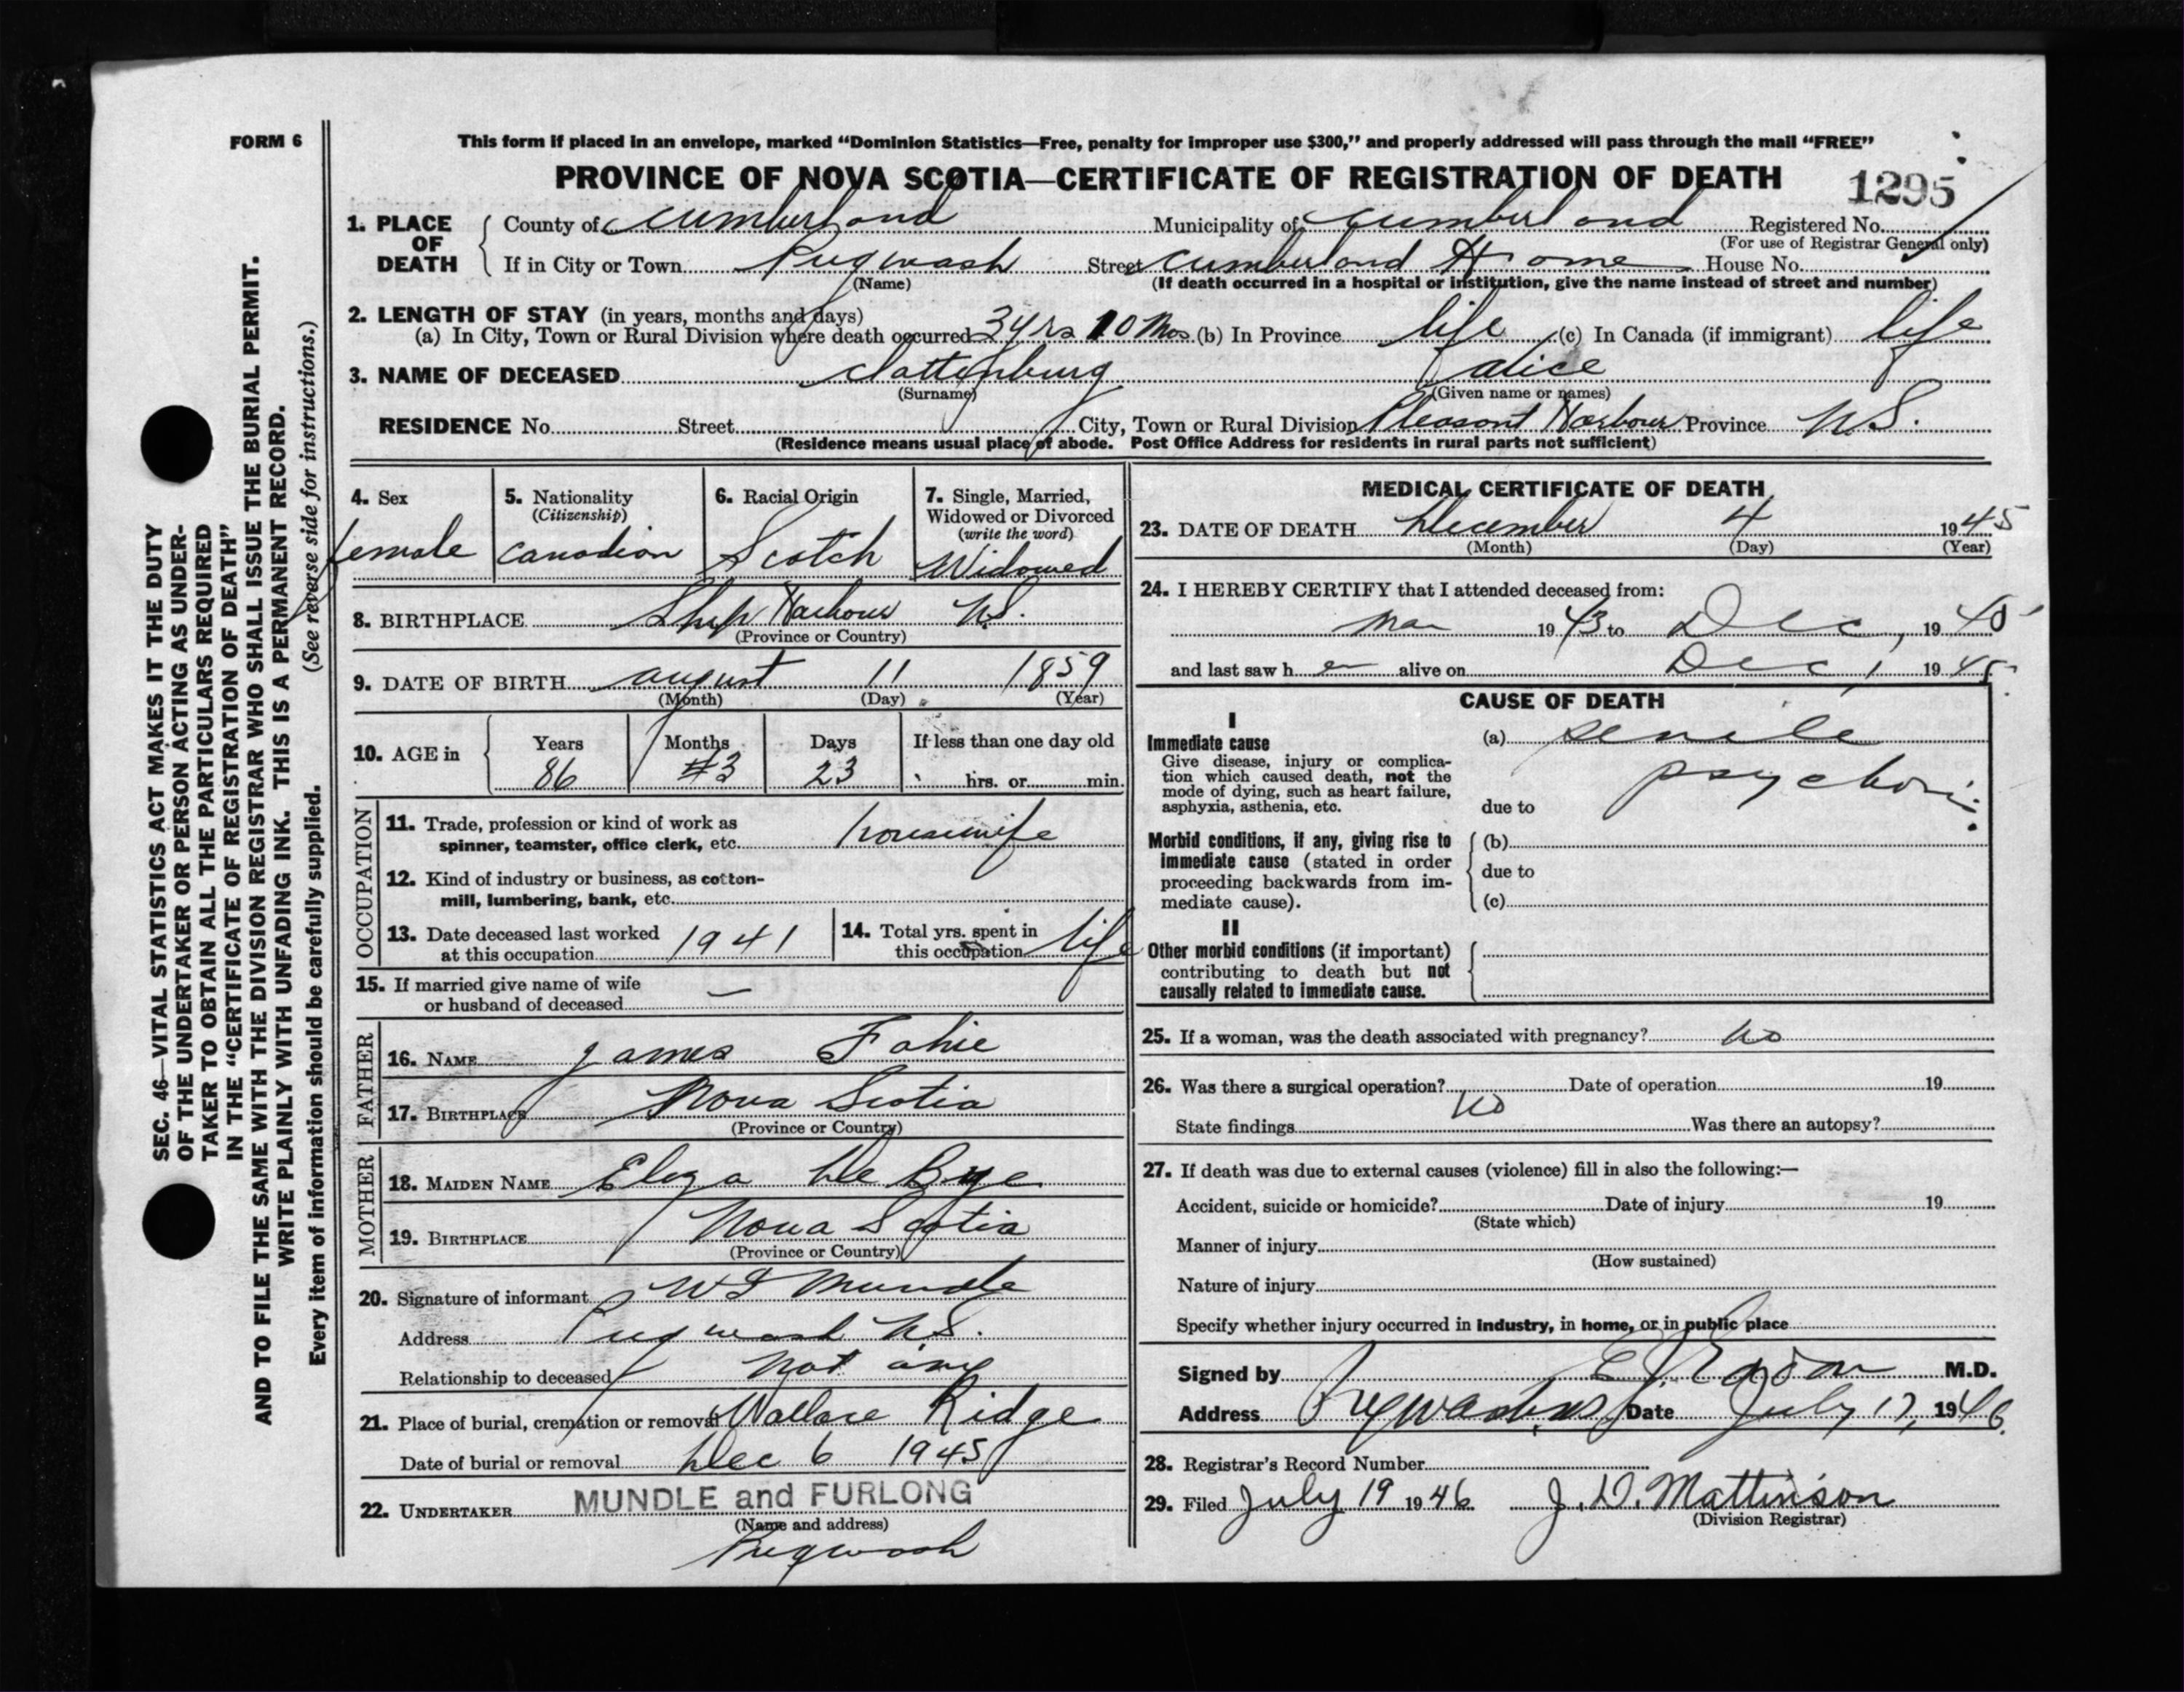 FORM 6
This form if placed in an envelope, marked "Dominion Statistics—Free, penalty for improper use $300," and properly addressed will pass through the mail "FREE"
PROVINCE OF NOVA SCOTIA—CERTIFICATE OF REGISTRATION OF DEATH
1295
1. PLACE OF DEATH County of Cumberland Municipality of Cumberland Registered No.
(For use of Registrar General only)
If in City or Town Pugwash Street Cumberland Home House No.
(Name) (If death occurred in a hospital or institution, give the name instead of street and number)
2. LENGTH OF STAY (in years, months and days)
(a) In City, Town or Rural Division where death occurred 3 yrs 10 Mos (b) In Province life (c) In Canada (if immigrant) life
3. NAME OF DECEASED Clattenburg Alice
(Surname) (Given name or names)
RESIDENCE No. Street City, Town or Rural Division Pleasant Harbour Province N.S.
(Residence means usual place of abode. Post Office Address for residents in rural parts not sufficient)
SEC. 46—VITAL STATISTICS ACT MAKES IT THE DUTY
OF THE UNDERTAKER OR PERSON ACTING AS UNDER-
TAKER TO OBTAIN ALL THE PARTICULARS REQUIRED
IN THE "CERTIFICATE OF REGISTRATION OF DEATH"
AND TO FILE THE SAME WITH THE DIVISION REGISTRAR WHO SHALL ISSUE THE BURIAL PERMIT.
WRITE PLAINLY WITH UNFADING INK. THIS IS A PERMANENT RECORD.
Every item of information should be carefully supplied. (See reverse side for instructions.)
4. Sex
female
5. Nationality
(Citizenship)
Canadian
6. Racial Origin
Scotch
7. Single, Married,
Widowed or Divorced
(write the word)
Widowed
8. BIRTHPLACE Ship Harbour N.S.
(Province or Country)
9. DATE OF BIRTH August 11 1859
(Month) (Day) (Year)
10. AGE in Years Months Days If less than one day old
86 3 23 hrs. or min.
OCCUPATION
11. Trade, profession or kind of work as
spinner, teamster, office clerk, etc. housewife
12. Kind of industry or business, as cotton-
mill, lumbering, bank, etc.
13. Date deceased last worked
at this occupation 1941
14. Total yrs. spent in
this occupation life
15. If married give name of wife
or husband of deceased —
FATHER
16. NAME James Fahie
17. BIRTHPLACE Nova Scotia
(Province or Country)
MOTHER
18. MAIDEN NAME Eliza De Bye
19. BIRTHPLACE Nova Scotia
(Province or Country)
20. Signature of informant Mundle
Address Pugwash N.S.
Relationship to deceased not any
21. Place of burial, cremation or removal Wallace Ridge
Date of burial or removal Dec 6 1945
22. UNDERTAKER MUNDLE and FURLONG
(Name and address)
Pugwash
MEDICAL CERTIFICATE OF DEATH
23. DATE OF DEATH December 4 1945
(Month) (Day) (Year)
24. I HEREBY CERTIFY that I attended deceased from:
Mar 1943 to Dec, 1945
and last saw her alive on Dec 1 1945
CAUSE OF DEATH
I
Immediate cause
Give disease, injury or complica-
tion which caused death, not the
mode of dying, such as heart failure,
asphyxia, asthenia, etc.
(a) senile
psychosis
due to
Morbid conditions, if any, giving rise to
immediate cause (stated in order
proceeding backwards from im-
mediate cause).
(b)
due to
(c)
II
Other morbid conditions (if important)
contributing to death but not
causally related to immediate cause.
25. If a woman, was the death associated with pregnancy? no
26. Was there a surgical operation? no Date of operation 19
State findings Was there an autopsy?
27. If death was due to external causes (violence) fill in also the following:—
Accident, suicide or homicide? Date of injury 19
(State which)
Manner of injury
(How sustained)
Nature of injury
Specify whether injury occurred in industry, in home, or in public place
Signed by M.D.
Address Pugwash NS Date July 17, 1946
28. Registrar's Record Number
29. Filed July 19 1946 J. D. Mattinson
(Division Registrar)